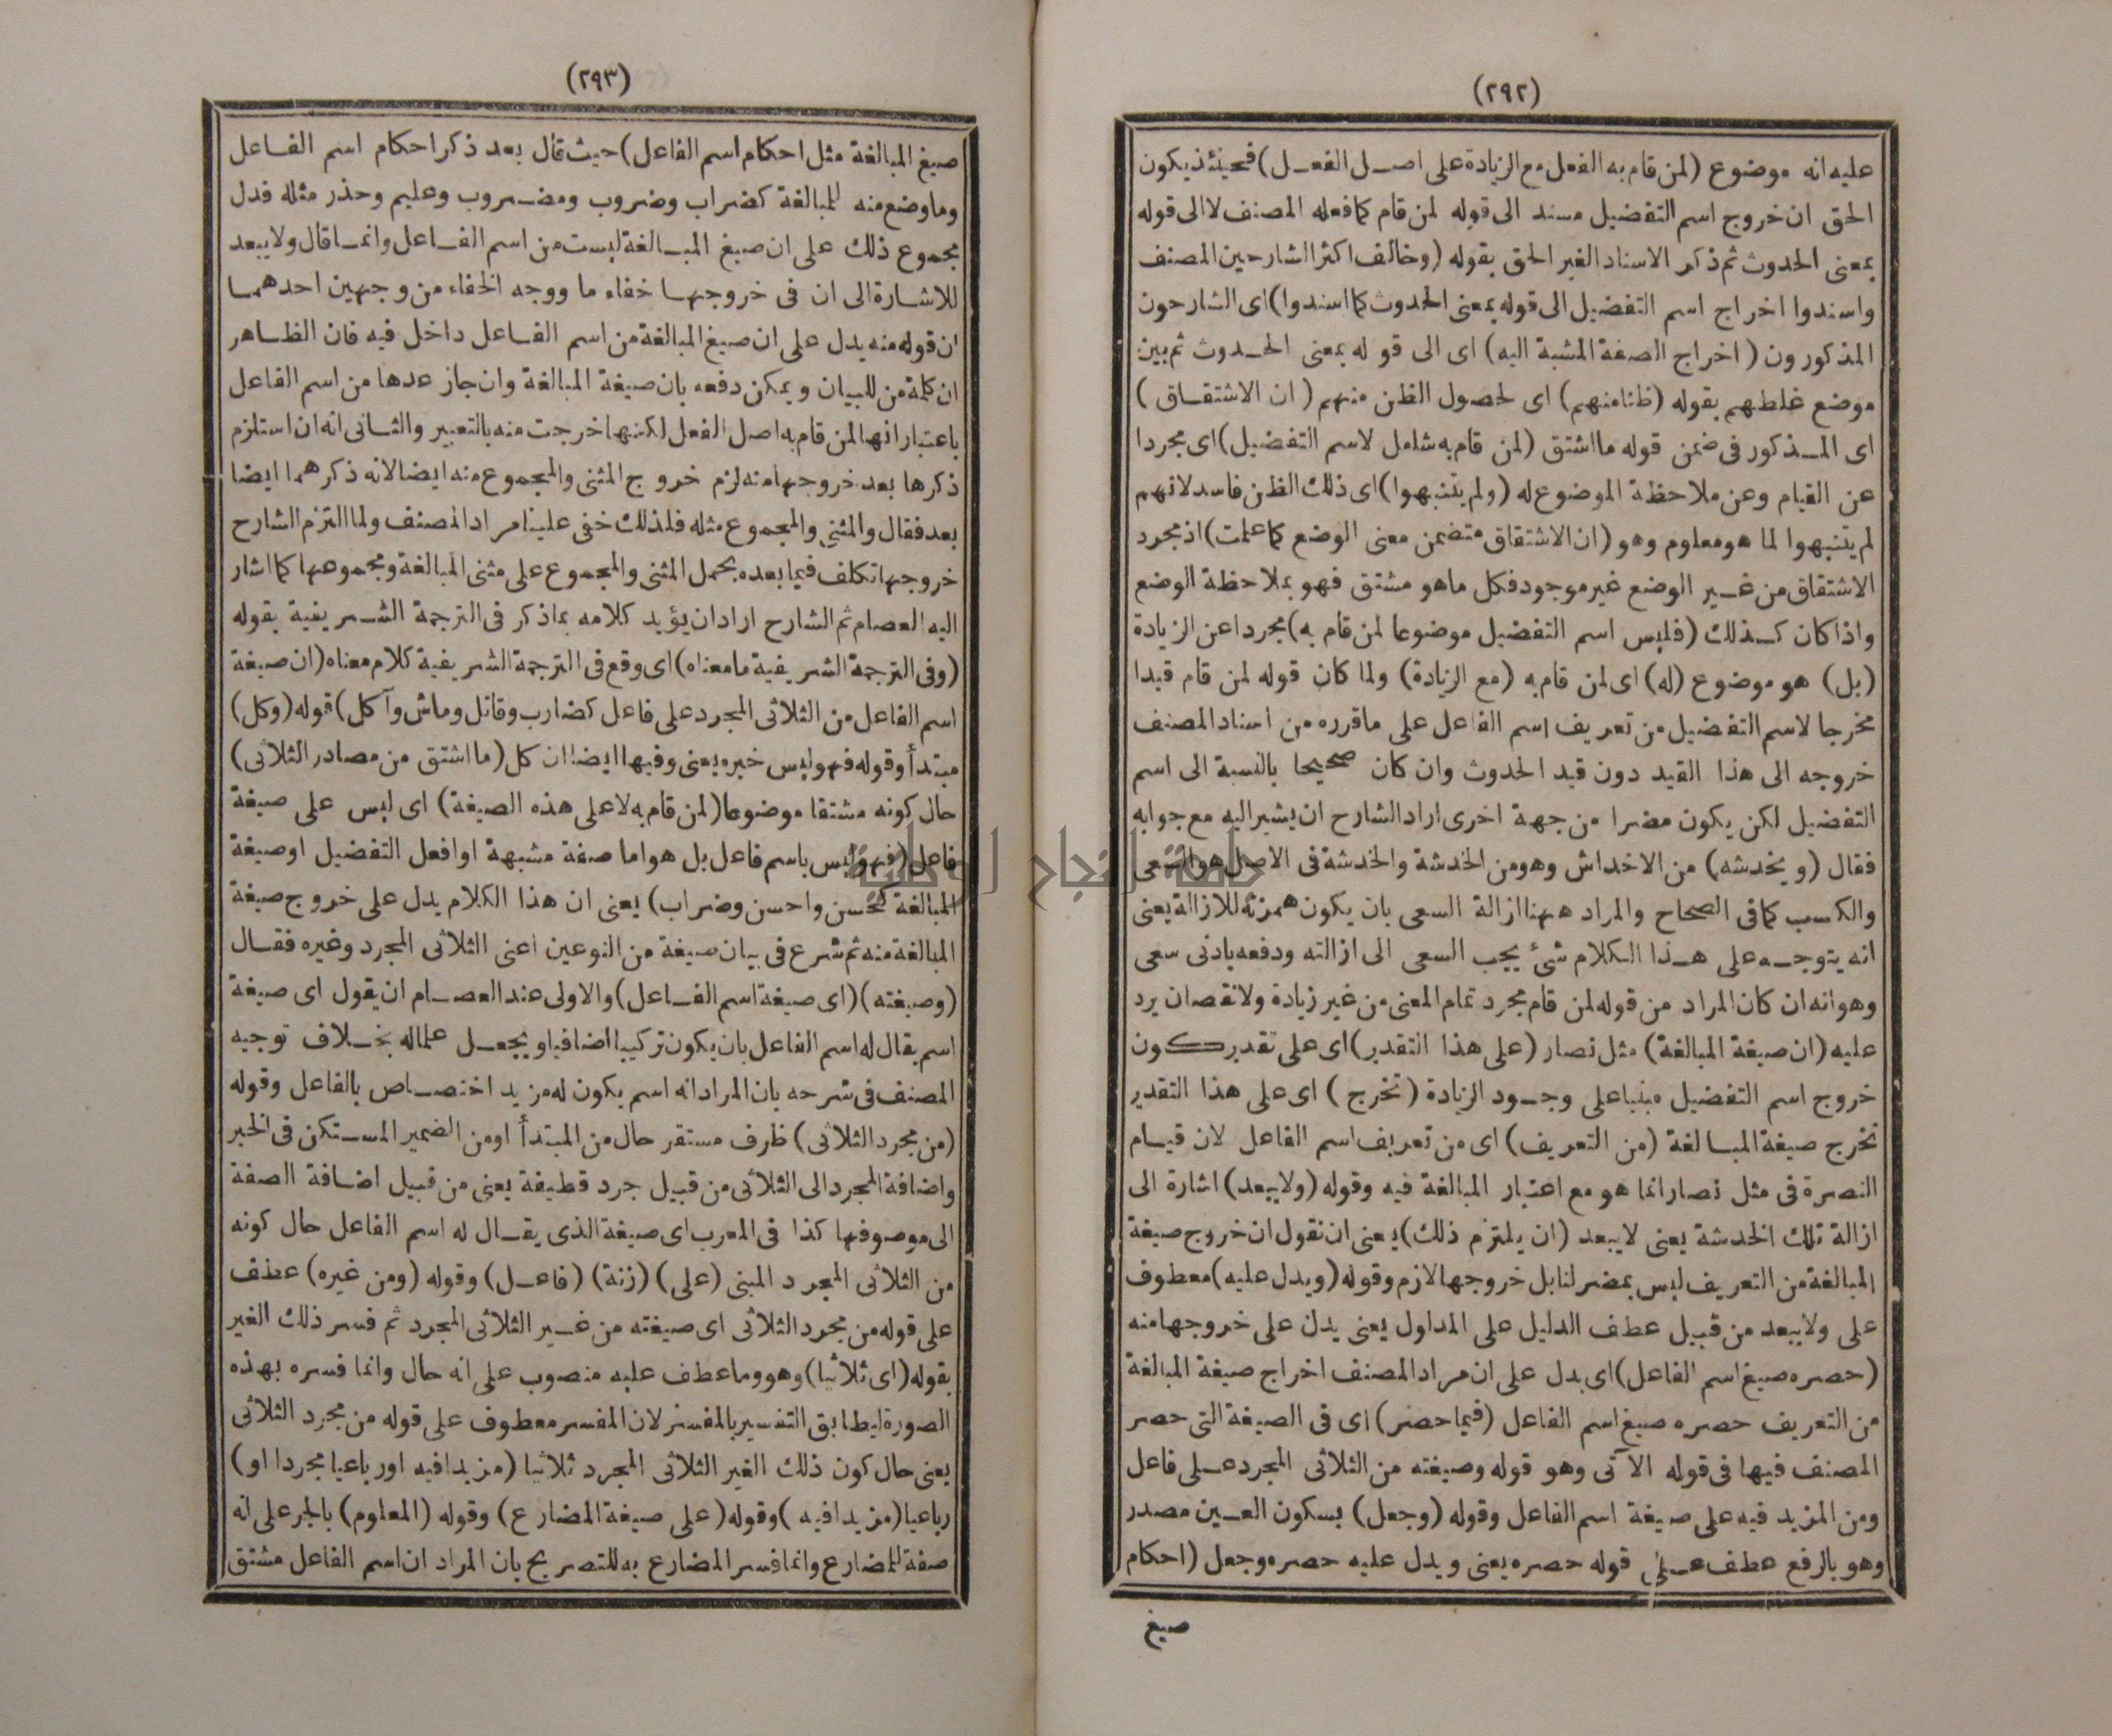 (٢٩٢)
عليه انه موضوع (لمن قام به الفعل مع الزيادة على اصل الفعل) فحينئذ يكون
الحق ان خروج اسم التفضيل مسند الى قوله لمن قام كما فعله المصنف لا الى قوله
بمعنى الحدوث ثم ذكر الاسناد الغير الحق بقوله (وخالف اكثر الشارحين المصنف
واسندوا اخراج اسم التفضيل الى قوله بمعنى الحدوث كما اسندوا) اى الشارحون
المذكورون (اخراج الصفة المشبة اليه) اى الى قوله بمعنى الحدوث ثم بين
موضع غلطهم بقوله (ظنا منهم) اى لحصول الظن منهم (ان الاشتقاق)
اى المذكور فى ضمن قوله ما اشتق (لمن قام به شامل لاسم التفضيل) اى مجردا
عن القيام وعن ملاحظة الموضوع له (ولم يتنبهوا) اى ذلك الظن فاسد لانهم
لم يتنبهوا لما هو معلوم وهو (ان الاشتقاق متضمن معنى الوضع كما علمت) اذ مجرد
الاشتقاق من غير الوضع غير موجود فكل ما هو مشتق فهو بملاحظة الوضع
واذا كان كذلك (فليس اسم التفضيل موضوعا لمن قام به) مجردا عن الزيادة
(بل) هو موضوع (له) اى لمن قام به (مع الزيادة) ولما كان قوله لمن قام قيدا
مخرجا لاسم التفضيل من تعريف اسم الفاعل على ما قرره من اسناد المصنف
خروجه الى هذا القيد دون قيد الحدوث وان كان صحيحا بالنسبة الى اسم
التفضيل لكن يكون مضرا من جهة اخرى اراد الشارح ان يشير اليه مع جوابه
فقال (ويخدشه) من الاخداش وهو من الخدشة والخدشة فى الاصل هو السعى
والكسب كما فى الصحاح والمراد ههنا ازالة السعى بان يكون همزته للازالة يعنى
انه يتوجه على هذا الكلام شئ يجب السعى الى ازالته ودفعه بادنى سعى
وهو انه ان كان المراد من قوله لمن قام مجرد تمام المعنى من غير زيادة ولا نقصان يرد
عليه (ان صيغة المبالغة) مثل نصار (على هذا التقدير) اى على تقدير كون
خروج اسم التفضيل مبنيا على وجود الزيادة (تخرج) اى على هذا التقدير
تخرج صيغة المبالغة (من التعريف) اى من تعريف اسم الفاعل لان قيام
النصرة فى مثل نصار انما هو مع اعتبار المبالغة فيه وقوله (ولا يبعد) اشارة الى
ازالة تلك الخدشة يعنى لا يبعد (ان يلتزم ذلك) يعنى ان نقول ان خروج صيغة
المبالغة من التعريف ليس بمضر لنا بل خروجها لازم وقوله (ويدل عليه) معطوف
على ولا يبعد من قبيل عطف الدليل على المدلول يعنى يدل على خروجها منه
(حصره صيغ اسم الفاعل) اى يدل على ان مراد المصنف اخراج صيغة المبالغة
من التعريف حصره صيغ اسم الفاعل (فيما حصر) اى فى الصيغة التى حصر
المصنف فيها فى قوله الآتى وهو قوله وصيغته من الثلاثى المجرد على فاعل
ومن المزيد فيه على صيغة اسم الفاعل وقوله (وجعل) بسكون العين مصدر
وهو بالرفع عطف على قوله حصره يعنى ويدل عليه حصره وجعل (احكام
صيغ
(٢٩٣)
صيغ المبالغة مثل احكام اسم الفاعل) حيث قال بعد ذكر احكام اسم الفاعل
وما وضع منه للمبالغة كضراب وضروب ومضروب وعليم وحذر مثله فدل
مجموع ذلك على ان صيغ المبالغة ليست من اسم الفاعل وانما قال ولا يبعد
للاشارة الى ان فى خروجها خفاء ما ووجه الخفاء من وجهين احدهما
ان قوله منه يدل على ان صيغ المبالغة من اسم الفاعل داخل فيه فان الظاهر
ان كلمة من للبيان ويمكن دفعه بان صيغة المبالغة وان جاز عدها من اسم الفاعل
باعتبار انها لمن قام به اصل الفعل لكنها اخرجت منه بالتعبير والثانى انه ان استلزم
ذكرها بعد خروجها منه لزم خروج المثنى والمجموع منه ايضا لانه ذكرهما ايضا
بعد فقال والمثنى والمجموع مثله فلذلك خفى علينا مراد المصنف ولما التزم الشارح
خروجها تكلف فيما بعده بحمل المثنى والمجموع على مثنى المبالغة ومجموعها كما اشار
اليه العصام ثم الشارح اراد ان يؤيد كلامه بما ذكر فى الترجمة الشريفية بقوله
(وفى الترجمة الشريفية ما معناه) اى وقع فى الترجمة الشريفية كلام معناه (ان صيغة
اسم الفاعل من الثلاثى المجرد على فاعل كضارب وقاتل وماش وآكل) قوله (وكل)
مبتدأ وقوله فهو ليس خبره يعنى وفيها ايضا ان كل (ما اشتق من مصادر الثلاثى)
حال كونه مشتقا موضوعا (لمن قام به لا على هذه الصيغة) اى ليس على صيغة
فاعل (فهو ليس باسم فاعل بل هو اما صفة مشبهة او افعل التفضيل او صيغة
المبالغة كحسن واحسن وضراب) يعنى ان هذا الكلام يدل على خروج صيغة
المبالغة منه ثم شرع فى بيان صيغة من النوعين اعنى الثلاثى المجرد وغيره فقال
(وصيغته) (اى صيغة اسم الفاعل) والاولى عند العصام ان يقول اى صيغة
اسم يقال له اسم الفاعل بان يكون تركيبا اضافيا ويجعل علما له بخلاف توجيه
المصنف فى شرحه بان المراد انه اسم يكون له مزيد اختصاص بالفاعل وقوله
(من مجرد الثلاثى) ظرف مستقر حال من المبتدأ او من الضمير المستكن فى الخبر
واضافة المجرد الى الثلاثى من قبيل جرد قطيفة يعنى من قبيل اضافة الصفة
الى موصوفها كذا فى المعرب اى صيغة الذى يقال له اسم الفاعل حال كونه
من الثلاثى المجرد المبنى (على) (زنة) (فاعل) وقوله (ومن غيره) عطف
على قوله من مجرد الثلاثى اى صيغته من غير الثلاثى المجرد ثم فسر ذلك الغير
بقوله (اى ثلاثيا) وهو وما عطف عليه منصوب على انه حال وانما فسره بهذه
الصورة ليطابق التفسير بالمفسر لان المفسر معطوف على قوله من مجرد الثلاثى
يعنى حال كون ذلك الغير الثلاثى المجرد ثلاثيا (مزيدا فيه او رباعيا مجردا او)
رباعيا (مزيدا فيه) وقوله (على صيغة المضارع) وقوله (المعلوم) بالجر على انه
صفة للمضارع وانما فسر المضارع به للتصريح بان المراد ان اسم الفاعل مشتق